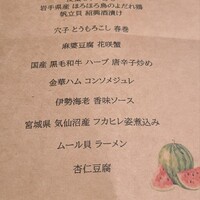 岩手県産 ほろほろ鳥のよだれ鶏
帆立貝 紹興酒漬け
穴子 とうもろこし 春巻
麻婆豆腐 花咲蟹
国産 黒毛和牛 ハーブ 唐辛子炒め
金華ハム コンソメジュレ
伊勢海老 香味ソース
宮城県 気仙沼産 フカヒレ姿煮込み
ムール貝 ラーメン
杏仁豆腐